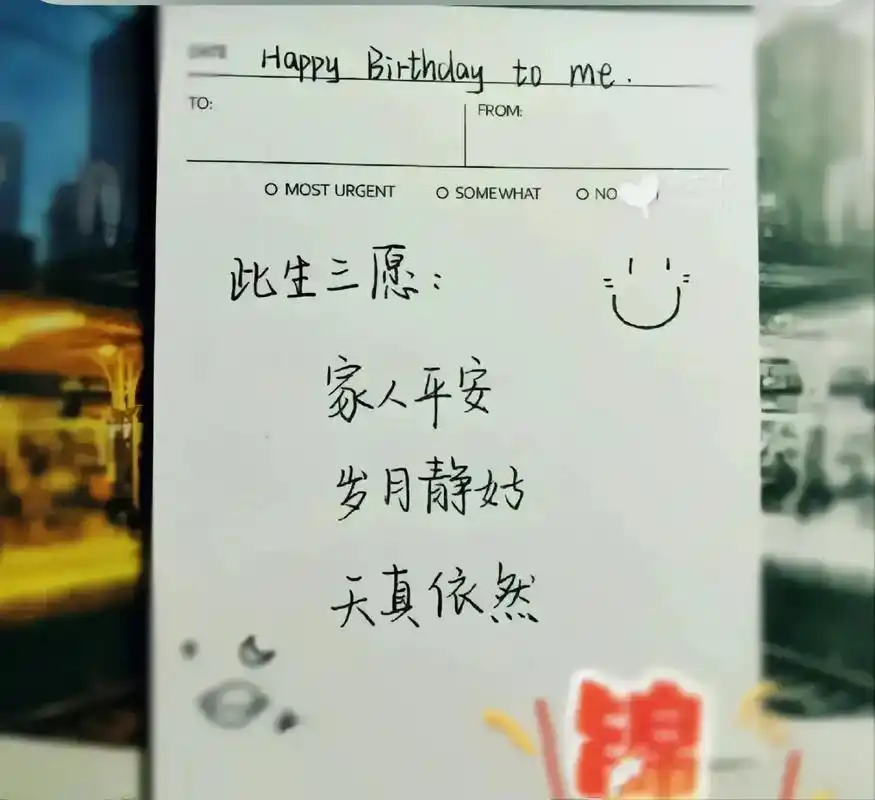 DATE Happy Birthday to me.
TO: FROM:
MOST URGENT SOMEWHAT NO
此生三愿：
家人平安
岁月静好
天真依然
锦